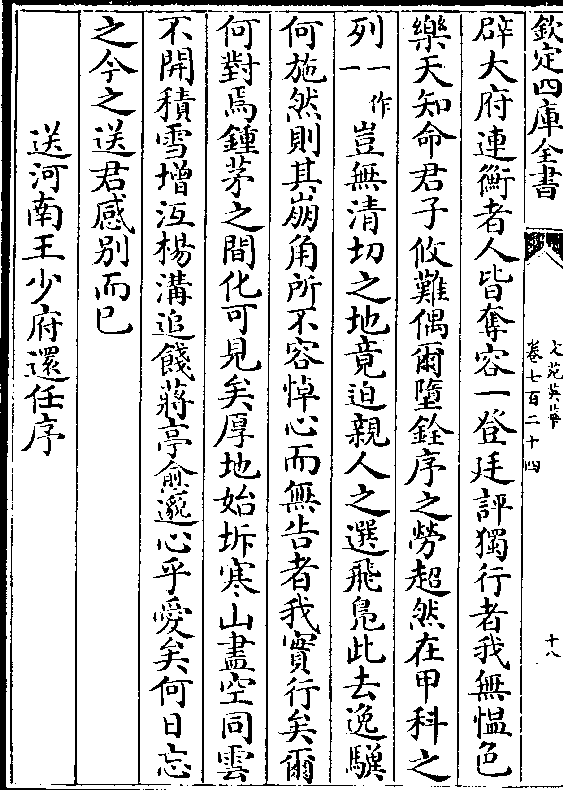 欽定四庫全書
文苑英華
卷七百二十四
十八
辟大府連衡者人皆奪容一登廷評獨行者我無慍色
樂天知命君子攸難偶爾墮銓序之勞超然在甲科之
列一作一豈無清切之地竟迫親人之選飛鳬此去逸驥
何施然則其崩角所不容悼心而無告者我實行矣爾
何對焉鍾茅之間化可見矣厚地始坼寒山盡空同雲
不開積雪增沍楊溝追餞蔣亭僉邈心乎愛矣何日忘
之今之送君感别而已
送河南王少府還任序